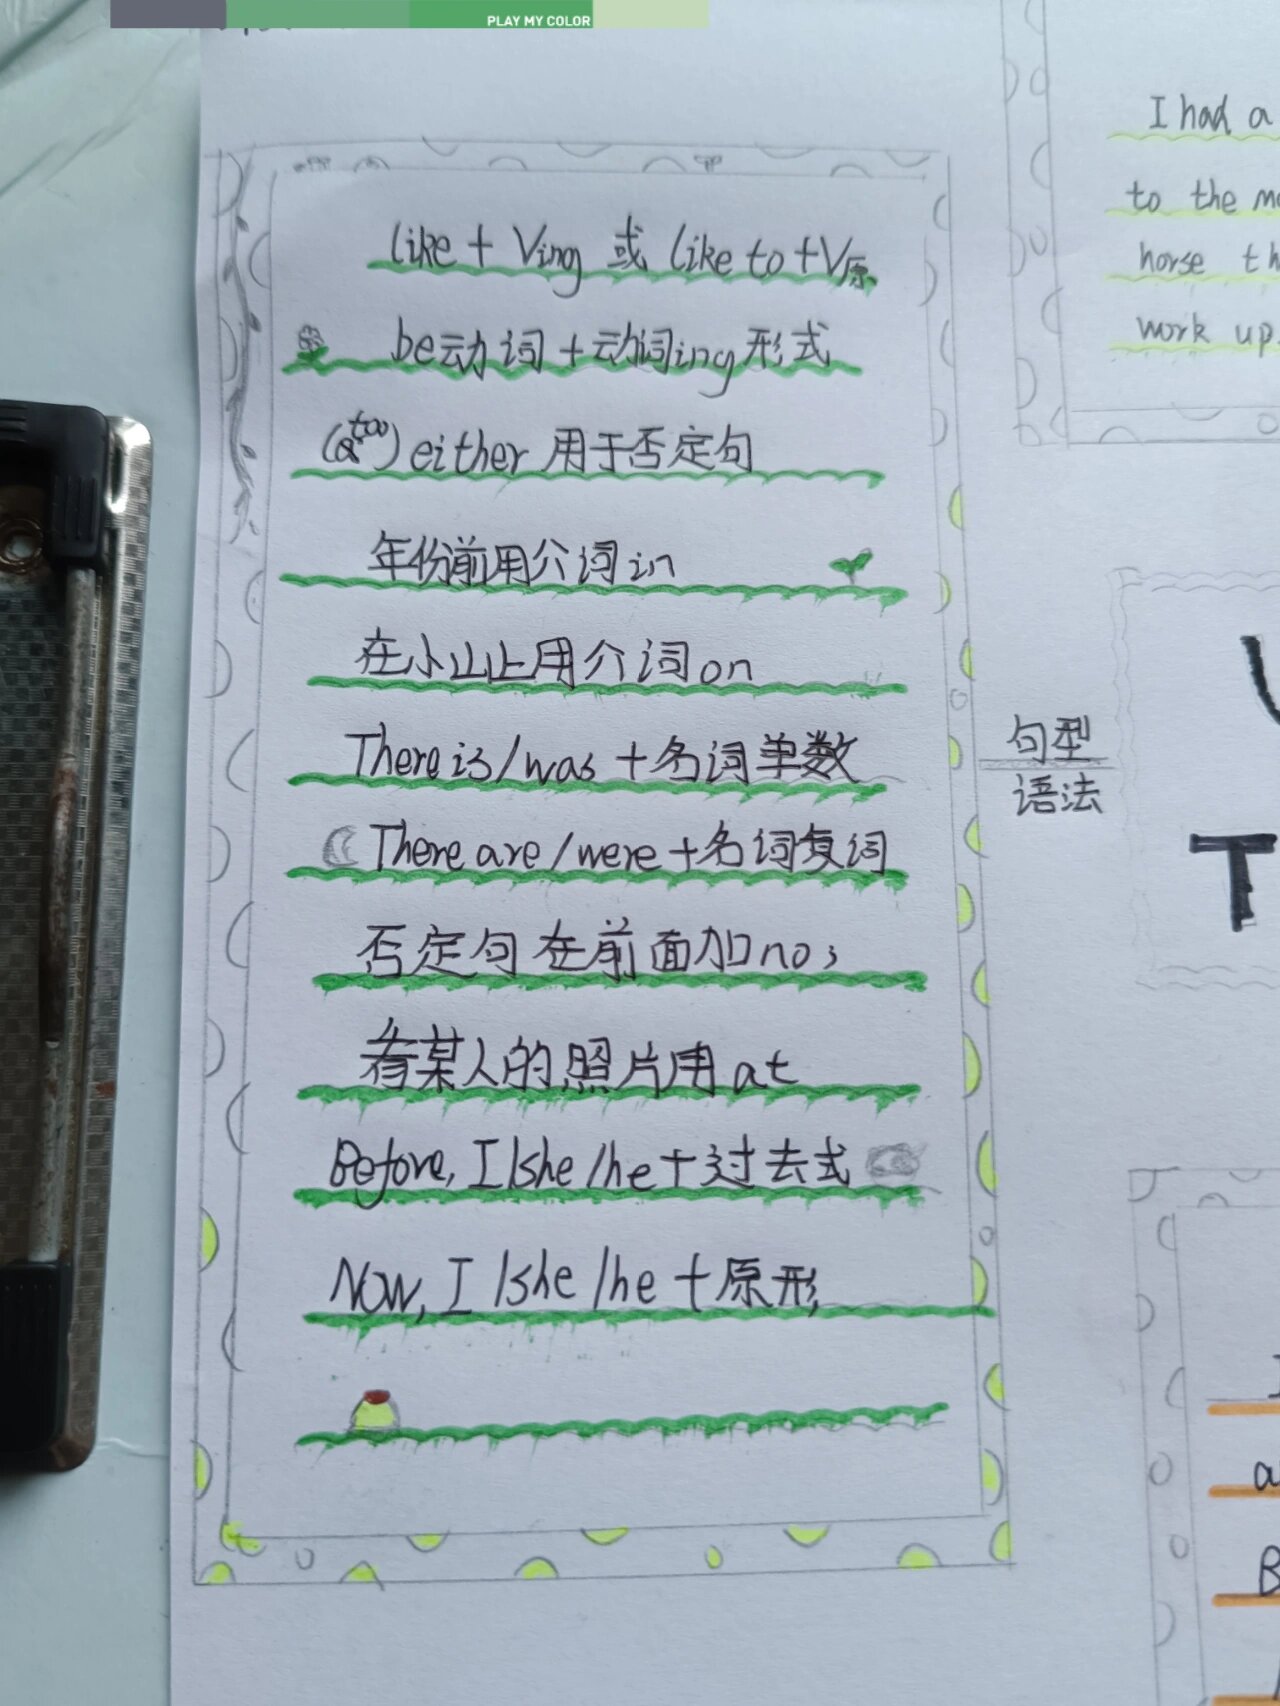 PLAY MY COLOR
like + Ving 或 like to + V原
be动词 + 动词ing形式
(too) either 用于否定句
年份前用介词in
在小山上用介词on
There is/was + 名词单数
There are/were + 名词复词
否定句在前面加no;
看某人的照片用at
Before, I/she/he + 过去式
Now, I/she/he + 原形
句型
语法
I had a
to the
horse
work up.
T